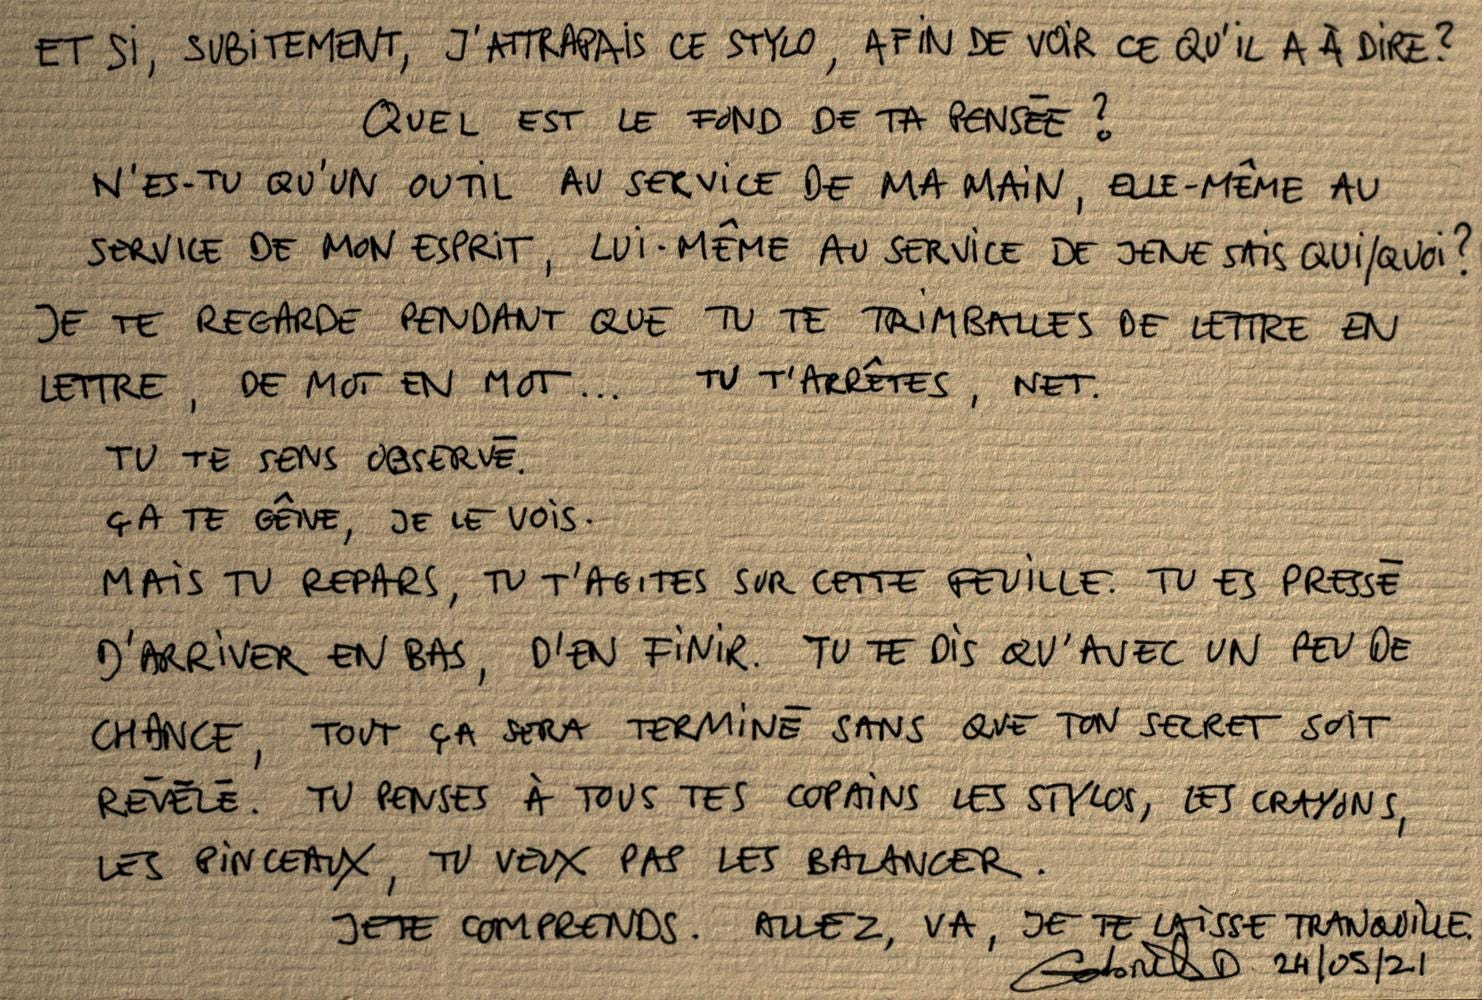 ET SI, SUBITEMENT, J'ATTRAPAIS CE STYLO, AFIN DE VOIR CE QU'IL A À DIRE?
QUEL EST LE FOND DE TA PENSÉE ?
N'ES-TU QU'UN OUTIL AU SERVICE DE MA MAIN, ELLE-MÊME AU
SERVICE DE MON ESPRIT, LUI-MÊME AU SERVICE DE JE NE SAIS QUI/QUOI?
JE TE REGARDE PENDANT QUE TU TE TRIMBALLES DE LETTRE EN
LETTRE, DE MOT EN MOT... TU T'ARRÊTES, NET.
TU TE SENS OBSERVÉ.
ÇA TE GÊNE, JE LE VOIS.
MAIS TU REPARS, TU T'AGITES SUR CETTE FEUILLE. TU ES PRESSÉ
D'ARRIVER EN BAS, D'EN FINIR. TU TE DIS QU'AVEC UN PEU DE
CHANCE, TOUT ÇA SERA TERMINÉ SANS QUE TON SECRET SOIT
RÉVÉLÉ. TU PENSES À TOUS TES COPAINS LES STYLOS, LES CRAYONS,
LES PINCEAUX, TU VEUX PAS LES BALANCER.
JE TE COMPRENDS. ALLEZ, VA, JE TE LAISSE TRANQUILLE.
D 24/05/21